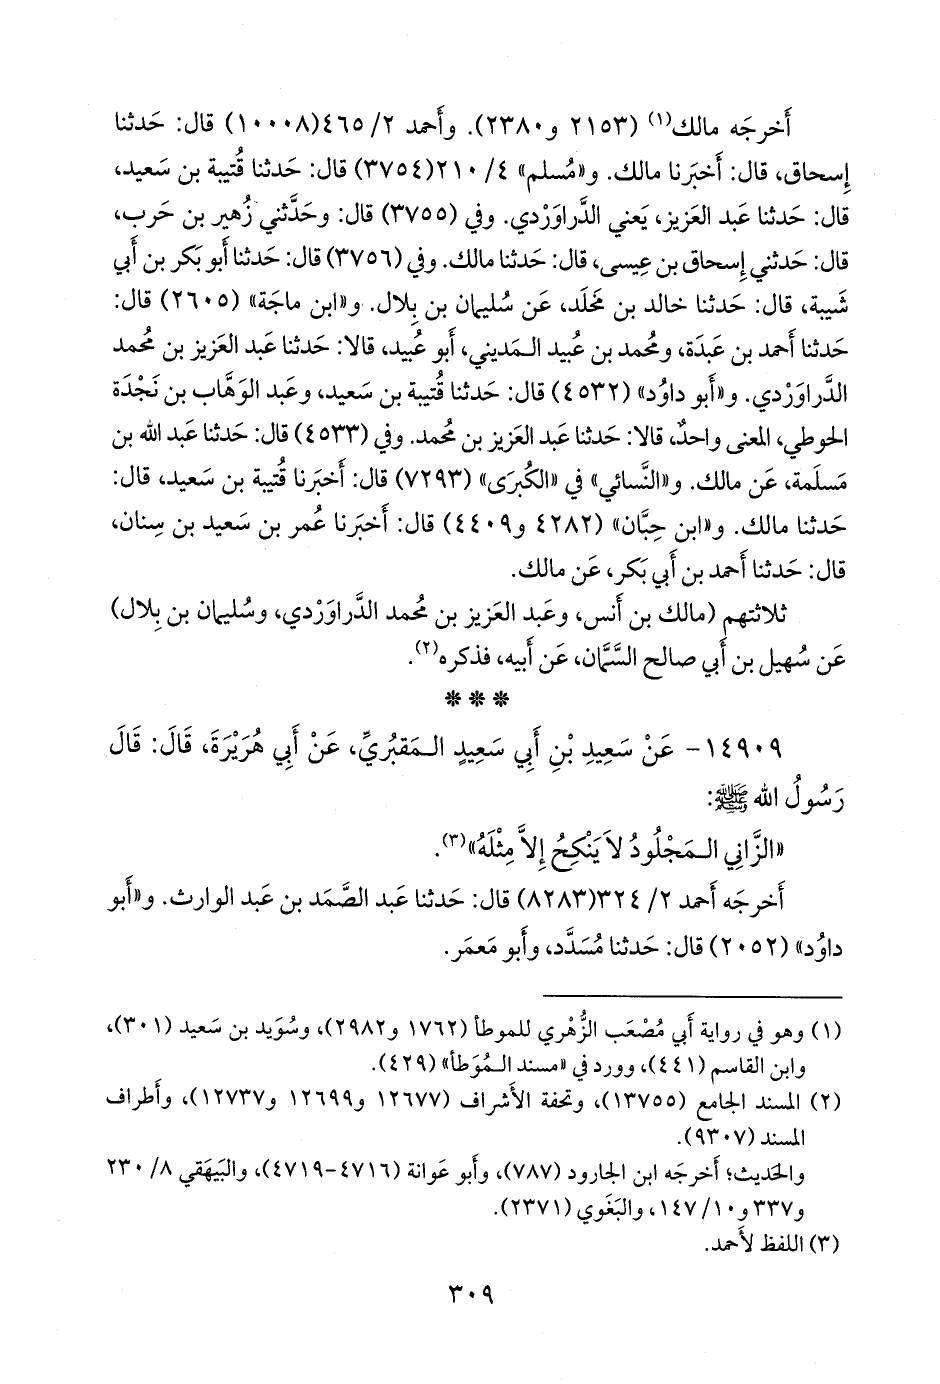 أَخرجَه مالك(١) (٢١٥٣ و٢٣٨٠). وأَحمد ٢/ ٤٦٥(١٠٠٠٨) قال: حَدثنا
إِسحاق، قال: أَخبَرنا مالك. و«مُسلم» ٤/ ٢١٠(٣٧٥٤) قال: حَدثنا قُتيبة بن سَعيد،
قال: حَدثنا عَبد العَزيز، يَعني الدَّراوَرْدي. وفي (٣٧٥٥) قال: وحَدَّثني زُهير بن حَرب،
قال: حَدثني إِسحاق بن عِيسى، قال: حَدثنا مالك. وفي (٣٧٥٦) قال: حَدثنا أَبو بَكر بن أَبي
شَيبة، قال: حَدثنا خالد بن مَخلَد، عَن سُليمان بن بِلال. و«ابن ماجَة» (٢٦٠٥) قال:
حَدثنا أَحمد بن عَبدَة، ومُحمد بن عُبيد الـمَديني، أَبو عُبيد، قالا: حَدثنا عَبد العَزيز بن مُحمد
الدَّراوَرْدي. و«أَبو داوُد» (٤٥٣٢) قال: حَدثنا قُتيبة بن سَعيد، وعَبد الوَهَّاب بن نَجْدَة
الحوطي، المعنى واحدٌ، قالا: حَدثنا عَبد العَزيز بن مُحمد. وفي (٤٥٣٣) قال: حَدثنا عَبد الله بن
مَسلَمة، عَن مالك. و«النَّسائي» في «الكُبرَى» (٧٢٩٣) قال: أَخبَرنا قُتيبة بن سَعيد، قال:
حَدثنا مالك. و«ابن حِبَّان» (٤٢٨٢ و٤٤٠٩) قال: أَخبَرنا عُمر بن سَعيد بن سِنان،
قال: حَدثنا أَحمد بن أَبي بَكر، عَن مالك.
ثلاثتهم (مالك بن أَنس، وعَبد العَزيز بن مُحمد الدَّراوَرْدي، وسُليمان بن بِلال)
عَن سُهيل بن أَبي صالح السَّمَّان، عَن أَبيه، فذكره(٢).
* * *
١٤٩٠٩- عَنْ سَعِيدِ بْنِ أَبِي سَعِيدٍ الـمَقبُرِيِّ، عَنْ أَبِي هُرَيْرَةَ، قَالَ: قَالَ
رَسُولُ الله ﷺ:
«الزَّانِي الـمَجْلُودُ لاَ يَنْكِحُ إِلاَّ مِثْلَهُ»(٣).
أَخرجَه أَحمد ٢/ ٣٢٤(٨٢٨٣) قال: حَدثنا عَبد الصَّمَد بن عَبد الوارث. و«أَبو
داوُد» (٢٠٥٢) قال: حَدثنا مُسَدَّد، وأَبو مَعمَر.
(١) وهو في رواية أَبي مُصْعَب الزُّهْري للموطأ (١٧٦٢ و٢٩٨٢)، وسُوَيد بن سَعيد (٣٠١)،
وابن القاسم (٤٤١)، وورد في «مسند الـمُوَطأ» (٤٢٩).
(٢) المسند الجامع (١٣٧٥٥)، وتحفة الأَشراف (١٢٦٧٧ و١٢٦٩٩ و١٢٧٣٧)، وأَطراف
المسند (٩٣٠٧).
والحَديث؛ أَخرجَه ابن الجارود (٧٨٧)، وأَبو عَوانة (٤٧١٦-٤٧١٩)، والبَيهَقي ٨/ ٢٣٠
و٣٣٧ و١٠/ ١٤٧، والبَغَوي (٢٣٧١).
(٣) اللفظ لأَحمد.
٣٠٩